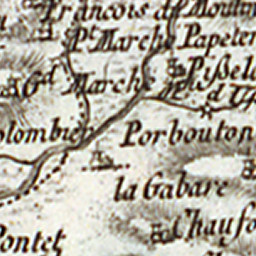 François de Moulin
Pt Marché Papeter
Gd Marché Pissel
olombier Porbouton
la Gabare
Chaufo
Pontet